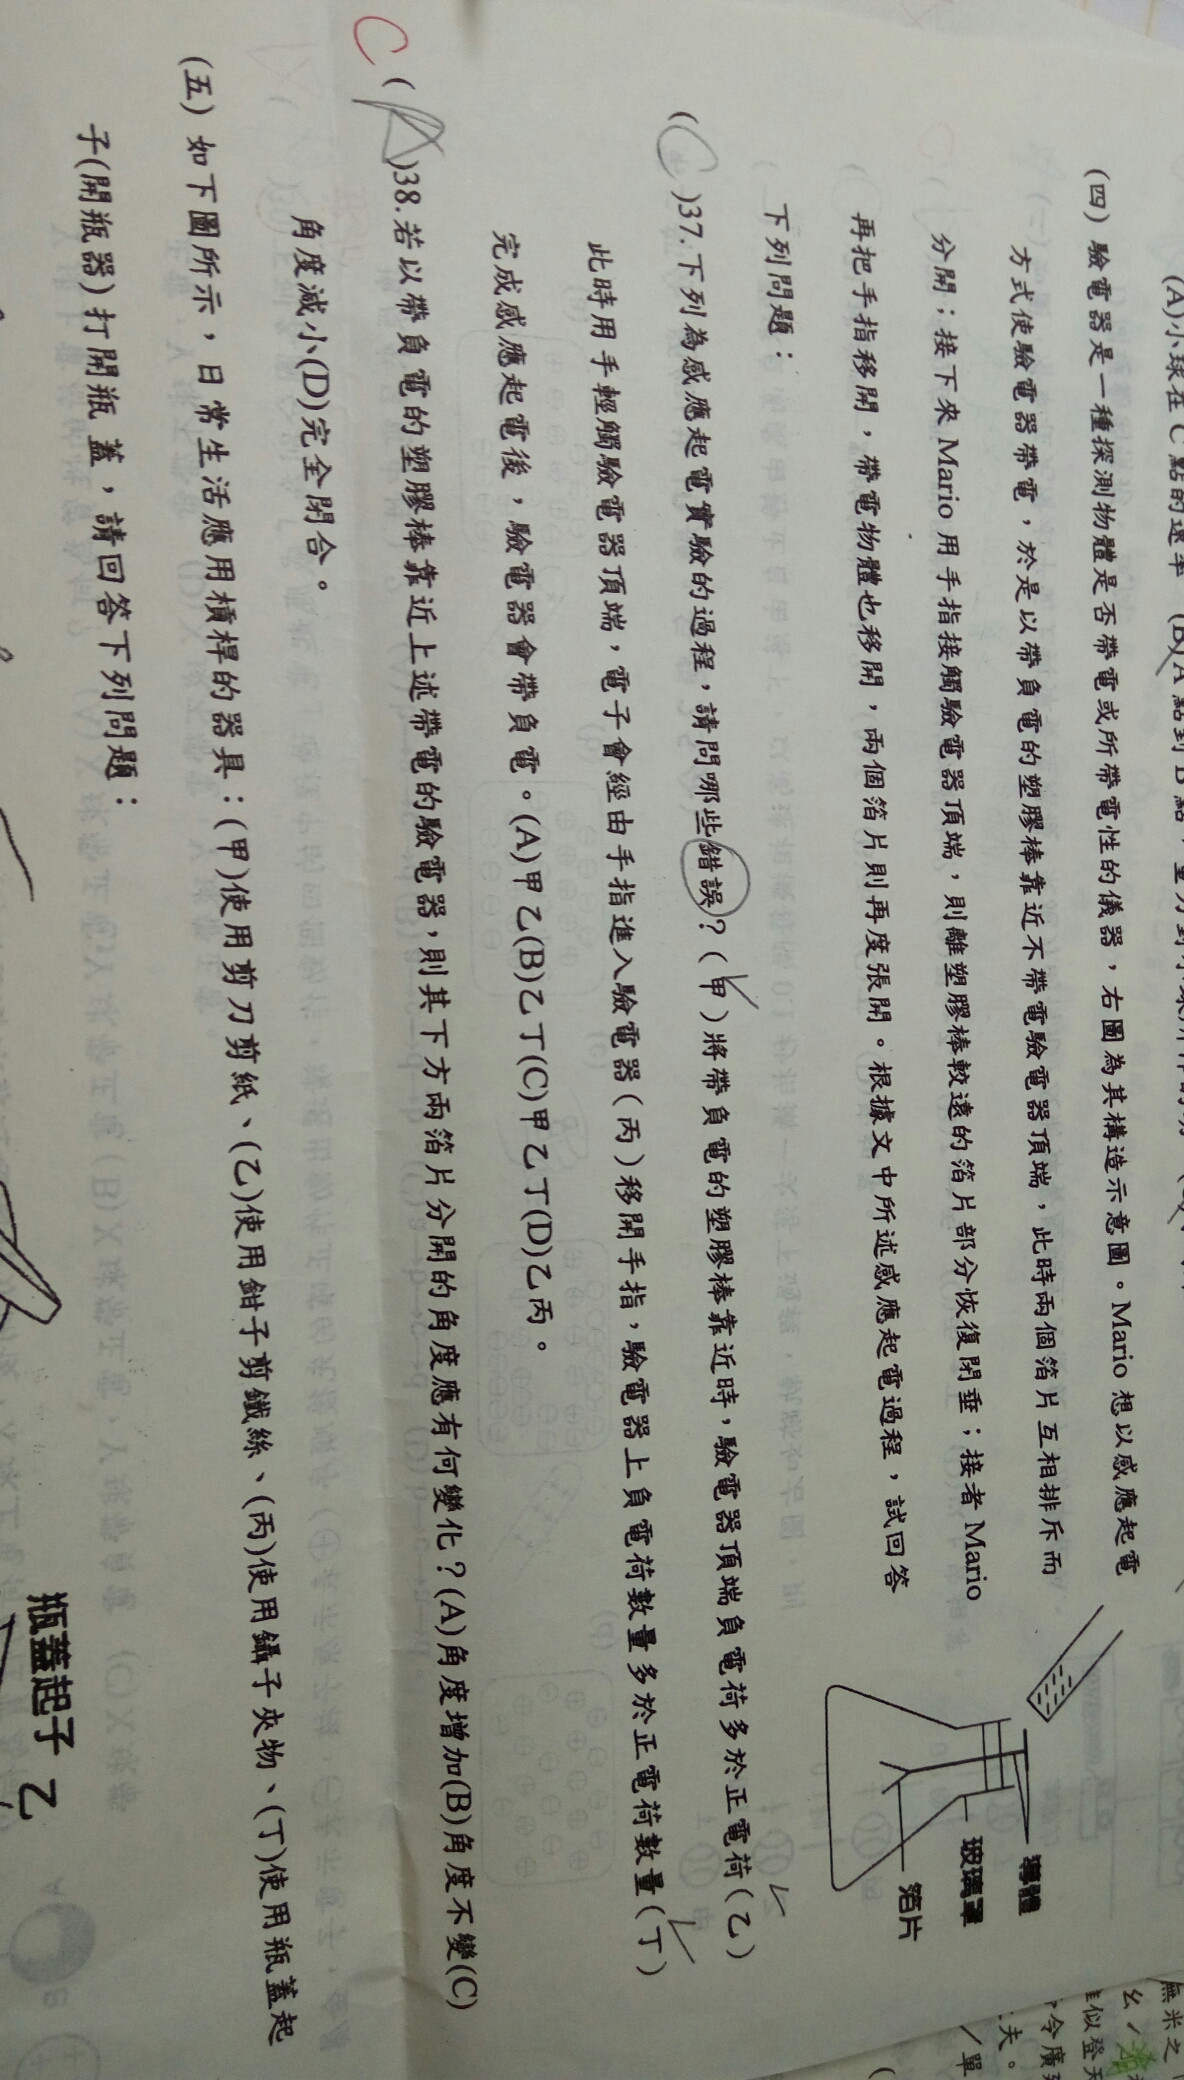 (A)小球在C點的速率 (B)A點到B點,重力對小球所作的功
(四) 驗電器是一種探測物體是否帶電或所帶電性的儀器,右圖為其構造示意圖。Mario 想以感應起電
方式使驗電器帶電,於是以帶負電的塑膠棒靠近不帶電驗電器頂端,此時兩個箔片互相排斥而
分開;接下來 Mario 用手指接觸驗電器頂端,則離塑膠棒較遠的箔片部分恢復閉垂;接者 Mario
再把手指移開,帶電物體也移開,兩個箔片則再度張開。根據文中所述感應起電過程,試回答
下列問題:
導體
玻璃罩
箔片
(C)37.下列為感應起電實驗的過程,請問哪些錯誤?(甲)將帶負電的塑膠棒靠近時,驗電器頂端負電荷多於正電荷(乙)
此時用手輕觸驗電器頂端,電子會經由手指進入驗電器(丙)移開手指,驗電器上負電荷數量多於正電荷數量(丁)
完成感應起電後,驗電器會帶負電。(A)甲乙(B)乙丁(C)甲乙丁(D)乙丙。
C
(A)38.若以帶負電的塑膠棒靠近上述帶電的驗電器,則其下方兩箔片分開的角度應有何變化?(A)角度增加(B)角度不變(C)
角度減小(D)完全閉合。
(五) 如下圖所示,日常生活應用槓桿的器具:(甲)使用剪刀剪紙、(乙)使用鉗子剪鐵絲、(丙)使用鑷子夾物、(丁)使用瓶蓋起
子(開瓶器)打開瓶蓋,請回答下列問題:
瓶蓋起子 乙
無米之
夫。